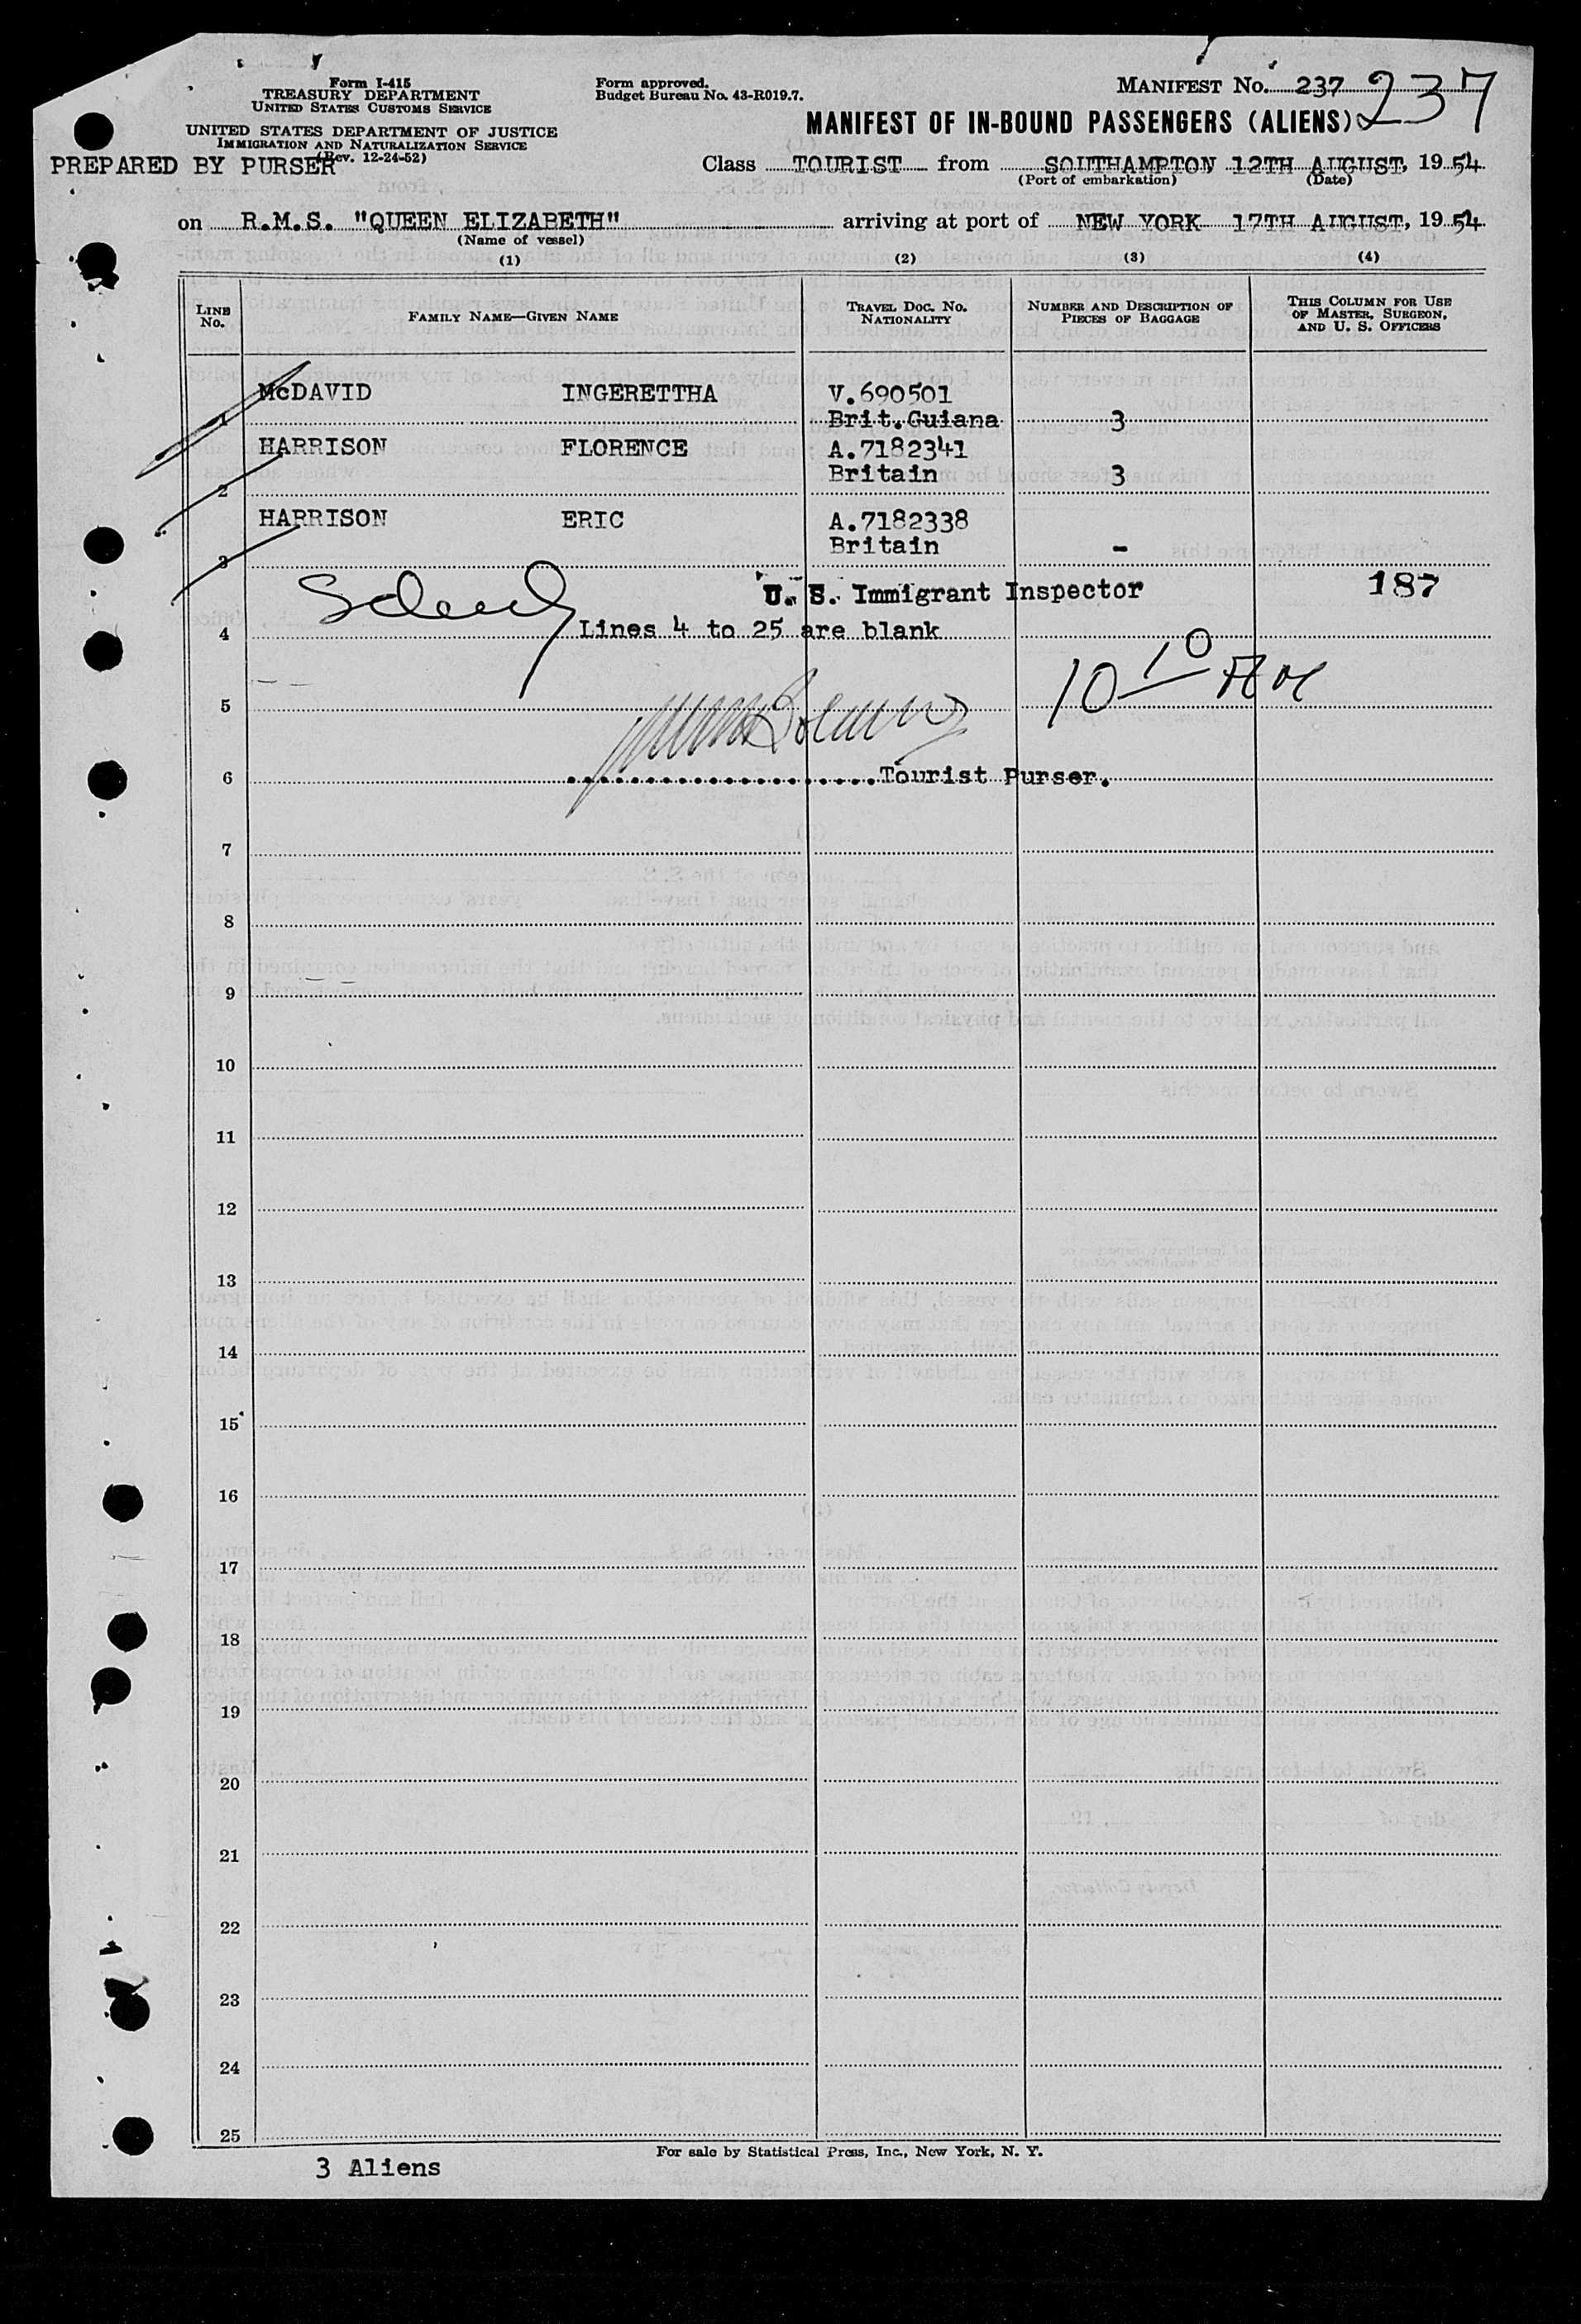 Form I-415
TREASURY DEPARTMENT
UNITED STATES CUSTOMS SERVICE
UNITED STATES DEPARTMENT OF JUSTICE
IMMIGRATION AND NATURALIZATION SERVICE
(Rev. 12-24-52)
PREPARED BY PURSER
Form approved.
Budget Bureau No. 43-R019.7.
MANIFEST No. 237 237
MANIFEST OF IN-BOUND PASSENGERS (ALIENS)
Class TOURIST from SOUTHAMPTON, 12TH AUGUST, 1954
(Port of embarkation) (Date)
on R.M.S. "QUEEN ELIZABETH" arriving at port of NEW YORK 17TH AUGUST, 1954
(Name of vessel)
(1) (2) (3) (4)
LINE No. FAMILY NAME—GIVEN NAME TRAVEL DOC. NO. NATIONALITY NUMBER AND DESCRIPTION OF PIECES OF BAGGAGE THIS COLUMN FOR USE OF MASTER, SURGEON, AND U. S. OFFICERS
McDAVID INGERETTHA V.690501
1 Brit.Guiana 3
HARRISON FLORENCE A.7182341
2 Britain 3
HARRISON ERIC A.7182338
3 Britain -
U. S. Immigrant Inspector 187
4 Lines 4 to 25 are blank
5 10 10
6 Tourist Purser.
7
8
9
10
11
12
13
14
15
16
17
18
19
20
21
22
23
24
25
For sale by Statistical Press, Inc., New York, N. Y.
3 Aliens